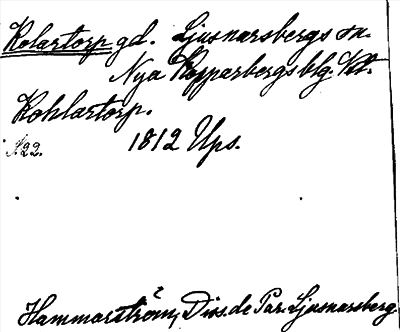 Kolartorp gd. Ljusnarsbergs sn.
Nya Kopparbergs blg. Vtl.
Kohlartorp.
1812 Ups.
S.22.
Hammarström, Diss. de Par. Ljusnarsberg